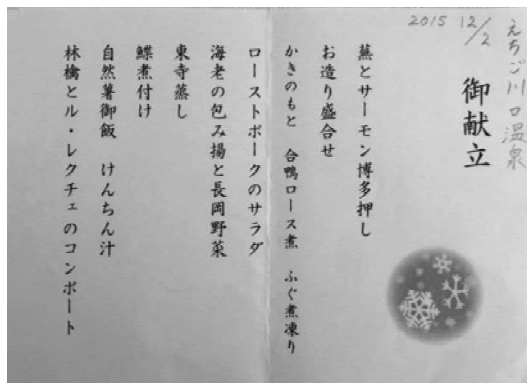 えちご川口温泉
2015 12/2
御献立
蕪とサーモン博多押し
お造り盛合せ
かきのもと 合鴨ロース煮 ふぐ煮凍り
ローストポークのサラダ
海老の包み揚と長岡野菜
東寺蒸し
鰈煮付け
自然薯御飯 けんちん汁
林檎とル・レクチェのコンポート